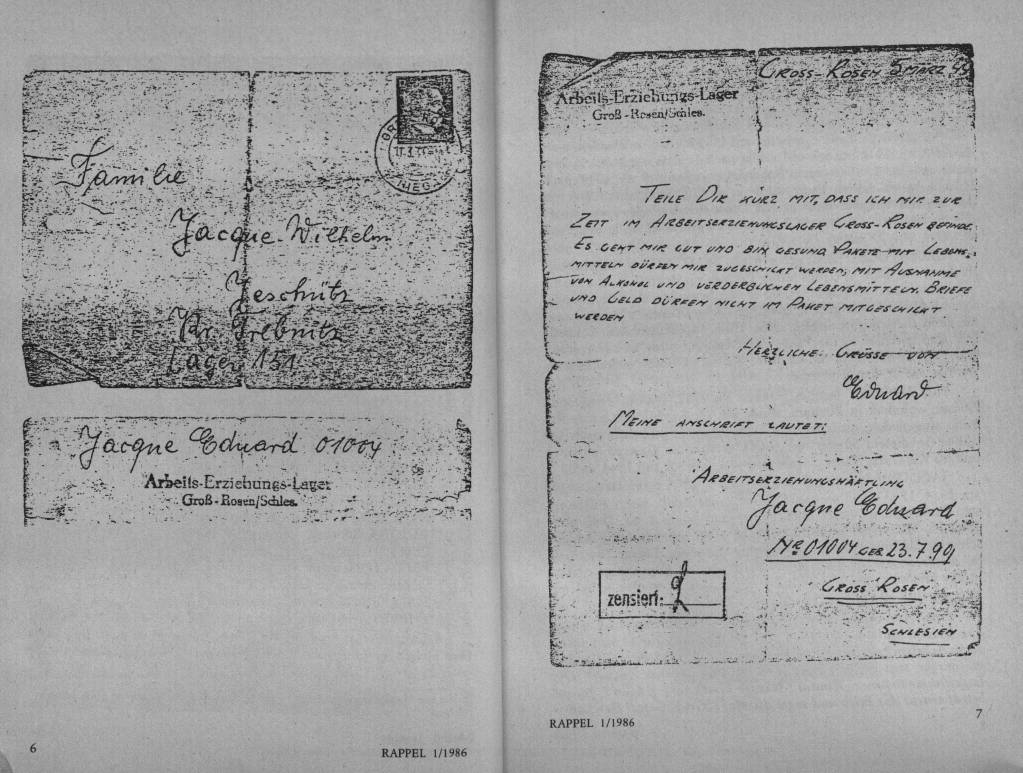 Familie
Jacque Wilhelm
Jeschütz
Kr. Trebnitz
Lager 151
Jacque Eduard 01004
Arbeits-Erziehungs-Lager
Groß-Rosen/Schles.
6
RAPPEL 1/1986
GROSS-ROSEN 5 MÄRZ
Arbeits-Erziehungs-Lager
Groß-Rosen/Schles.
TEILE DIR KURZ MIT, DASS ICH MIR ZUR
ZEIT IM ARBEITSERZIEHUNGSLAGER GROSS-ROSEN BEFINDE.
ES GEHT MIR GUT UND BIN GESUND PAKETE MIT LEBENS-
MITTELN DÜRFEN MIR ZUGESCHICKT WERDEN, MIT AUSNAHME
VON ALKOHOL UND VERDERBLICHEN LEBENSMITTELN. BRIEFE
UND GELD DÜRFEN NICHT IM PAKET MITGESCHICKT
WERDEN
HERZLICHE GRÜSSE VON
Eduard
MEINE ANSCHRIFT LAUTET:
ARBEITSERZIEHUNGSHÄFTLING
Jacque Eduard
No 01004 GEB 23.7.99
GROSS ROSEN
SCHLESIEN
zensiert:
RAPPEL 1/1986
7